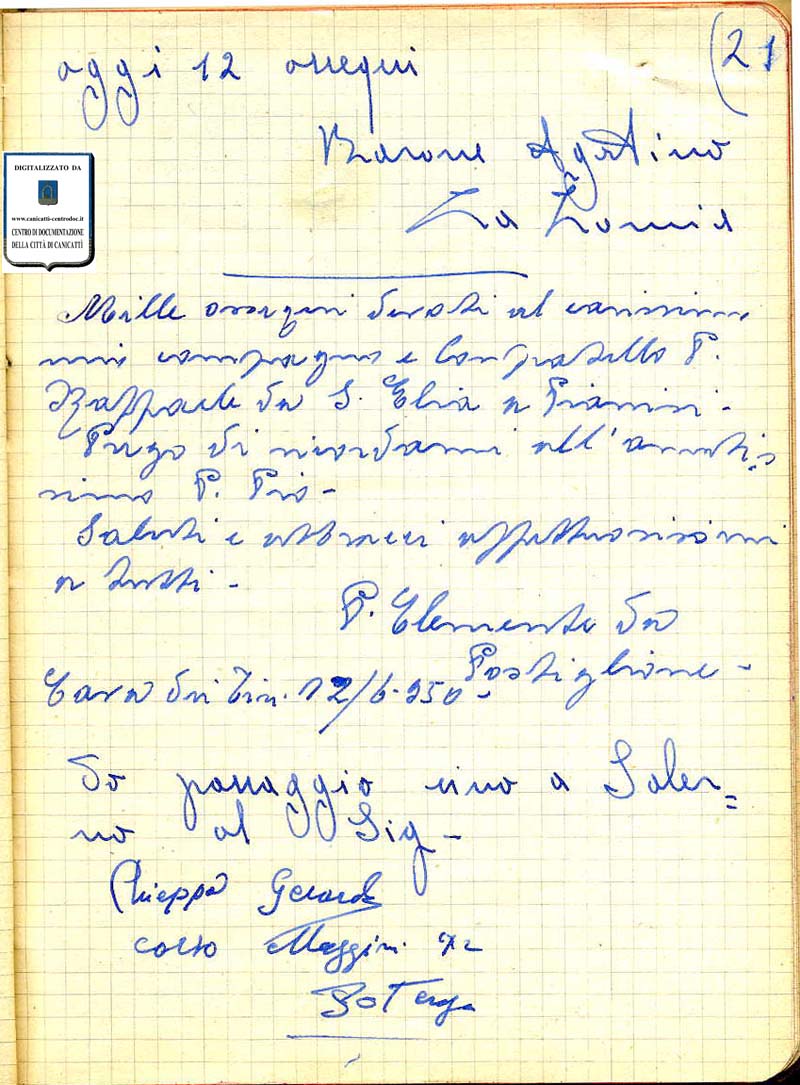 (21
oggi 12 ossequi
Barone Agostino
La Lomia
DIGITALIZZATO DA
www.canicatti-centrodoc.it
CENTRO DI DOCUMENTAZIONE
DELLA CITTÀ DI CANICATTÌ
Mille ossequi devoti al carissimo
mio compagno e Confratello P.
Raffaele da S. Elia a Pianisi -
Prego di ricordarmi all'amatis
simo P. Pio -
Saluti e abbracci affettuosissimi
a tutti -
P. Clemente da
Postiglione -
Cava dei Tir. 12/6-950 -
Do passaggio sino a Saler=
no al Sig -
Chieppa Gerardo
corso 72
Potenza